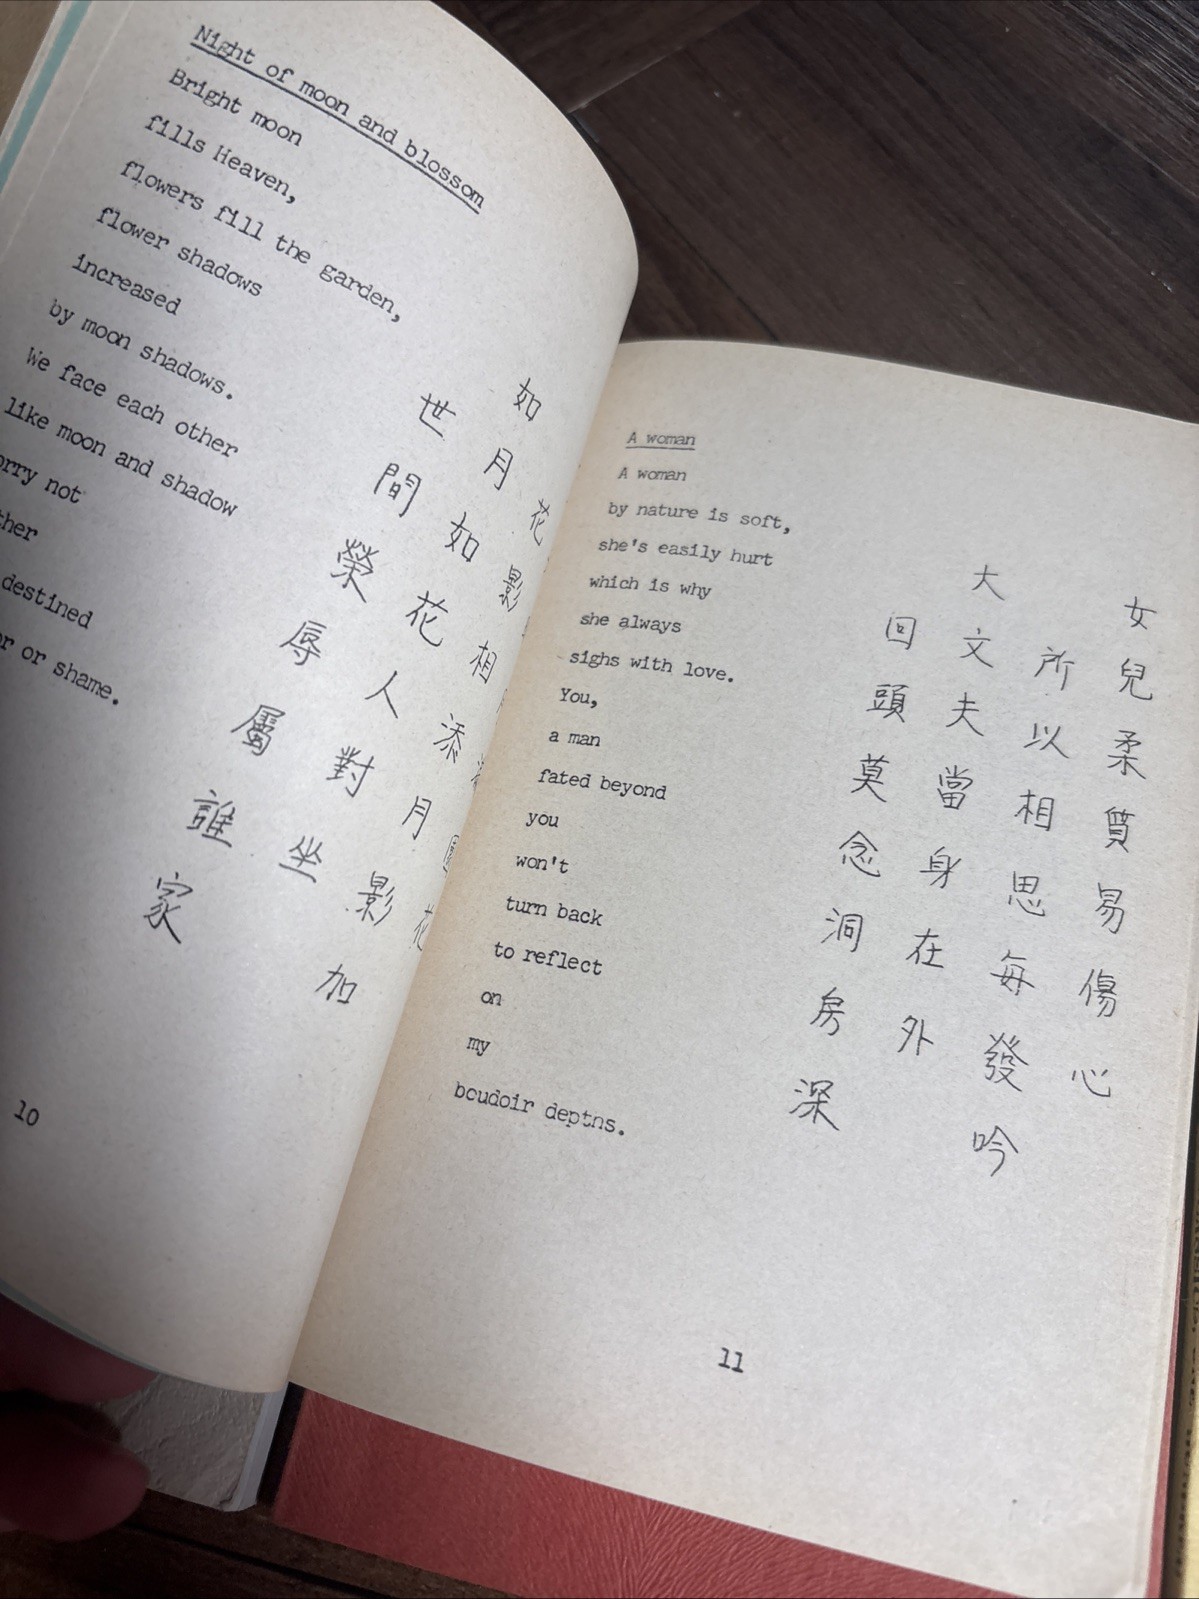 Night of moon and blossom
Bright moon
fills Heaven,
flowers fill the garden,
flower shadows
increased
by moon shadows.
We face each other
like moon and shadow
not
destined
or shame.
花影相添月影加
如月如花人對坐
世間榮辱屬誰家
10
A woman
A woman
by nature is soft,
she's easily hurt
which is why
she always
sighs with love.
You,
a man
fated beyond
you
won't
turn back
to reflect
on
my
bcudoir deptns.
女兒柔質易傷心
所以相思每發吟
大文夫當身在外
回頭莫念洞房深
11